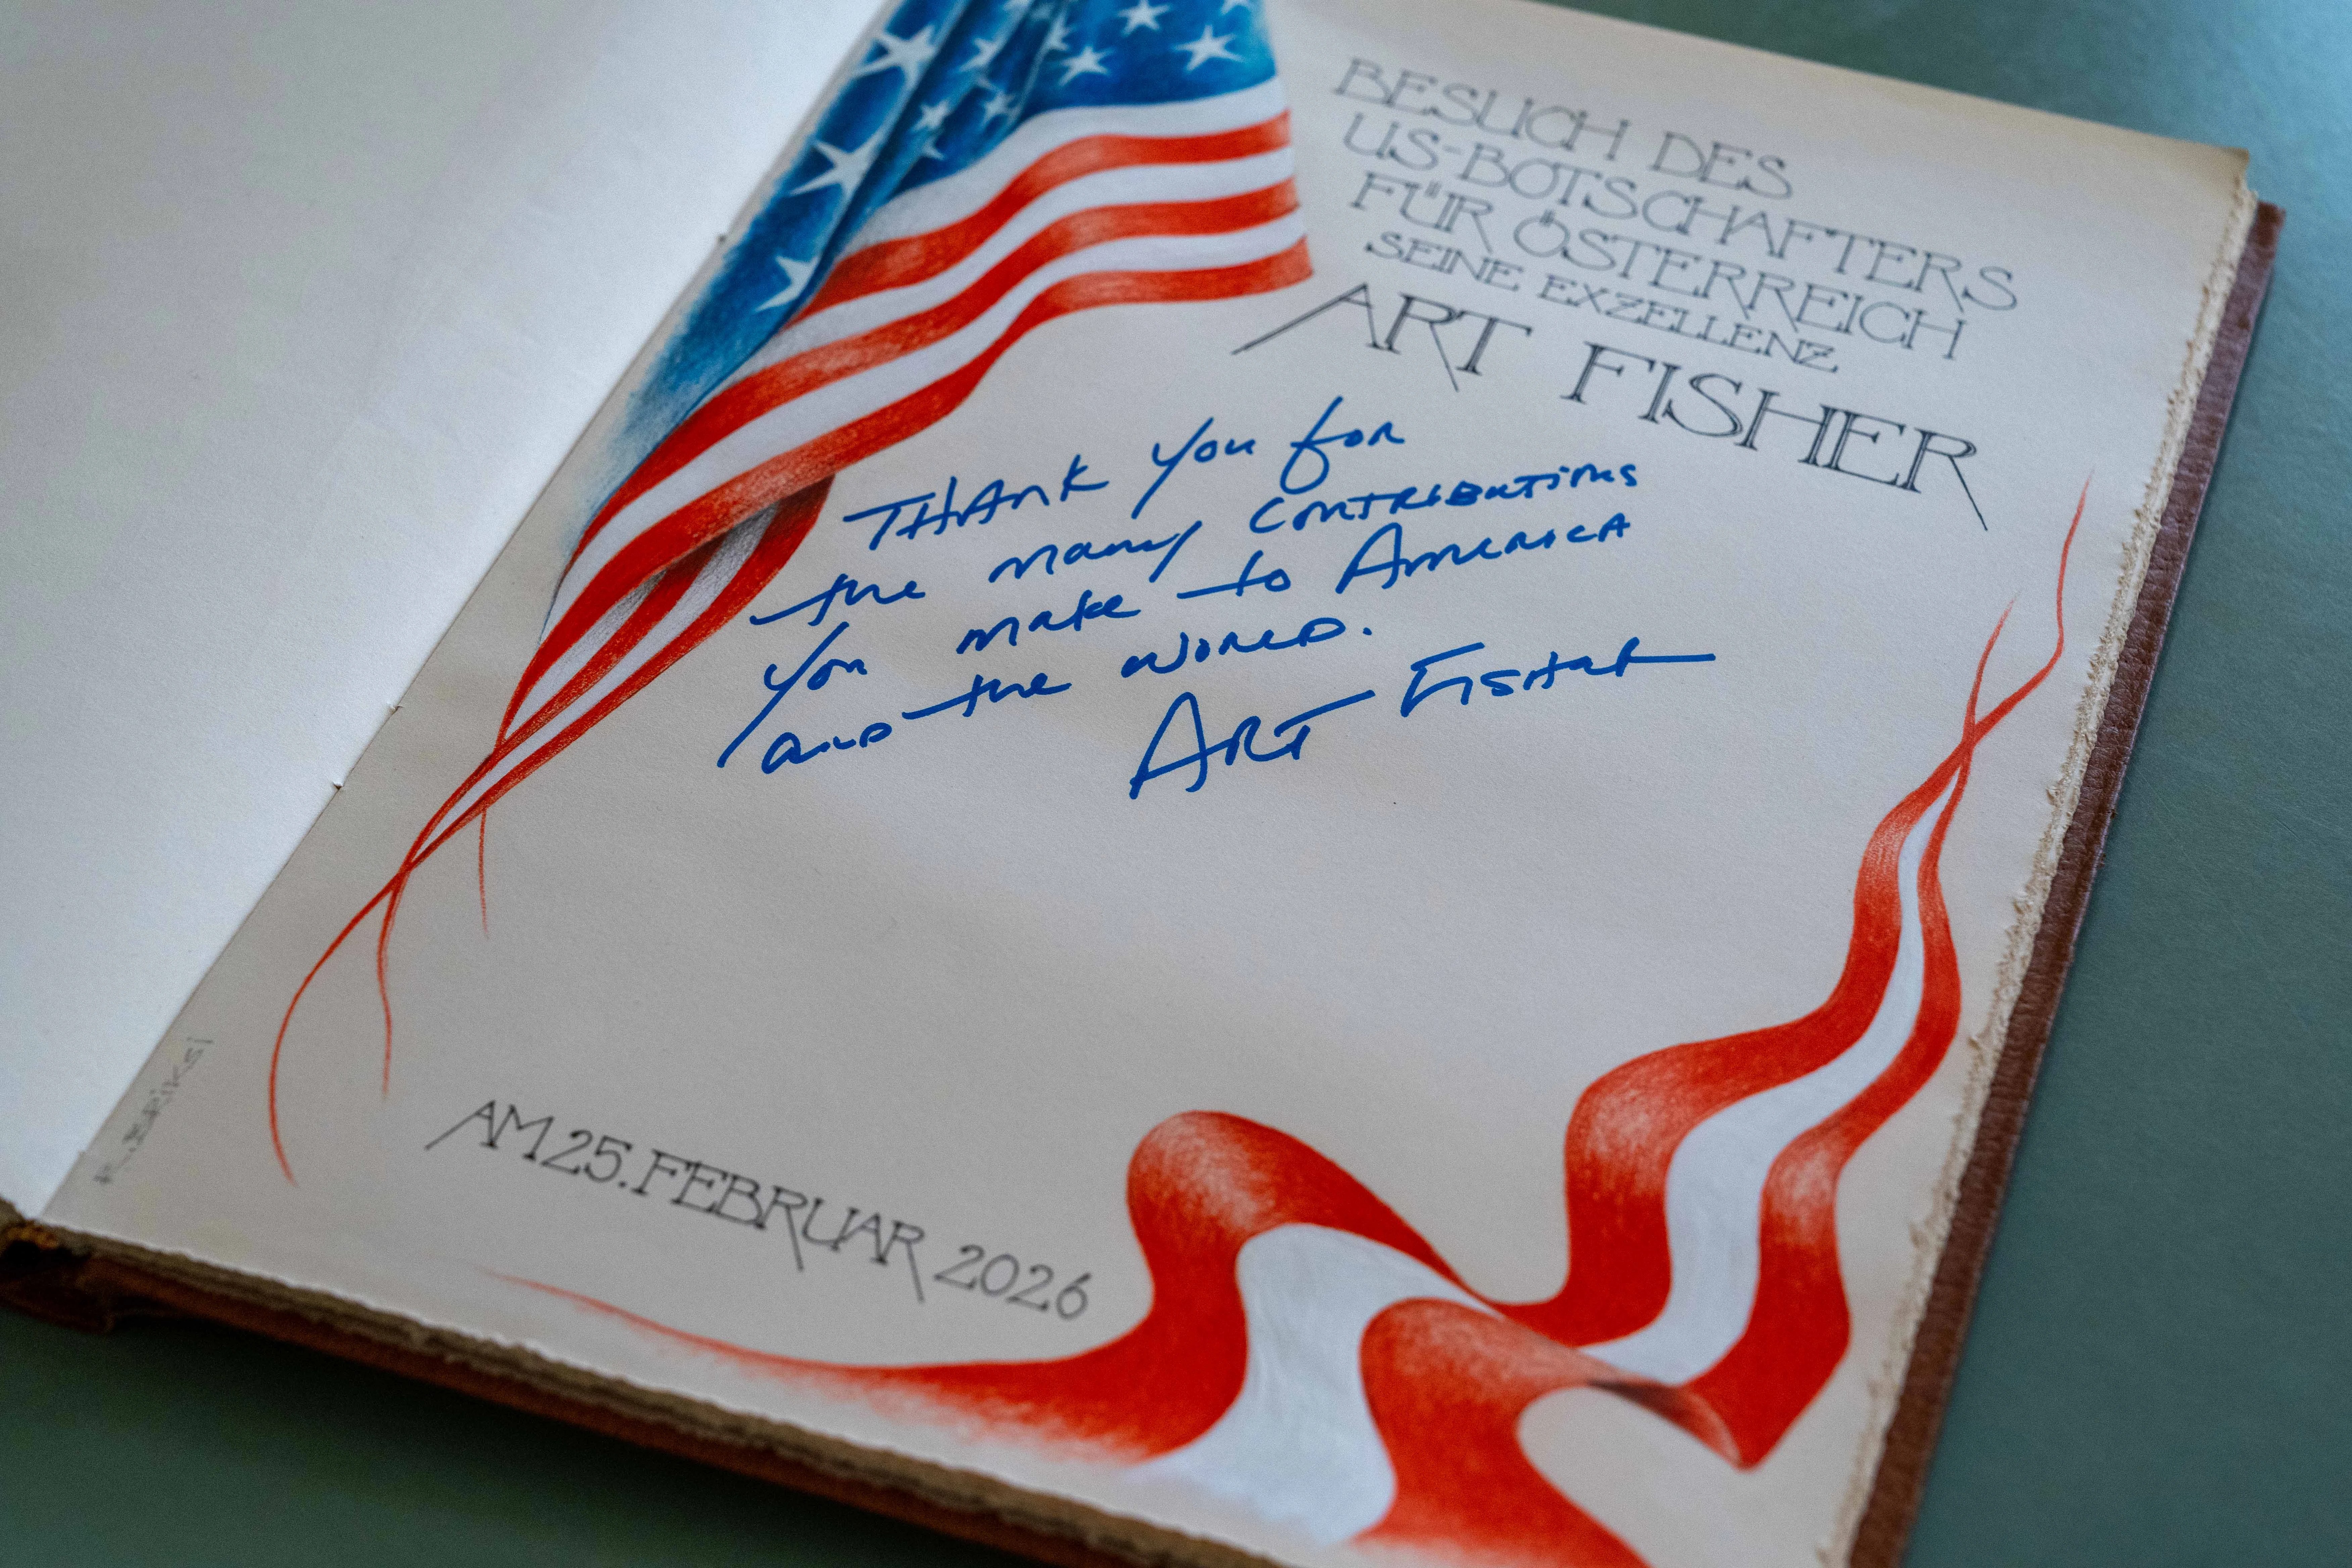 BESUCH DES
US-BOTSCHAFTERS
FÜR ÖSTERREICH
SEINE EXZELLENZ
ART FISHER
THANK YOU for
the many CONTRIBUTIONS
you make to AMERICA
and the WORLD.
ART FISHER
AM 25. FEBRUAR 2026